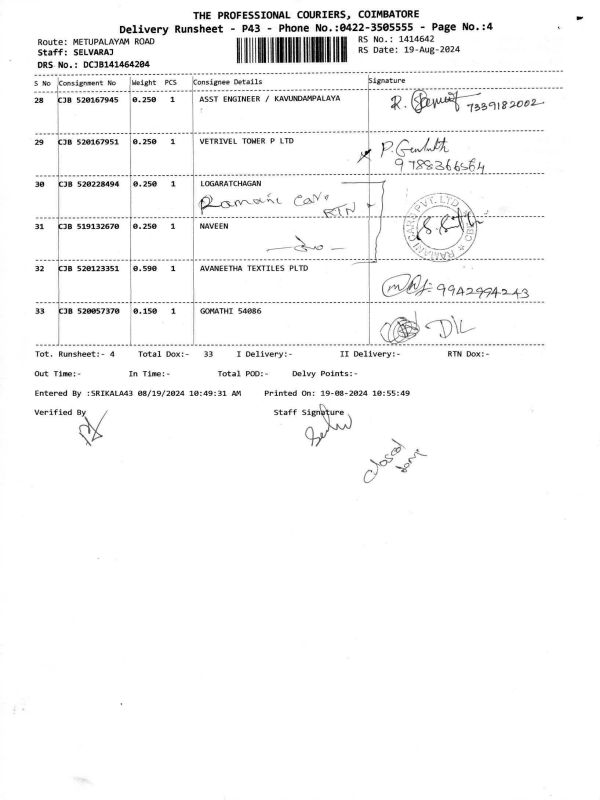 THE PROFESSIONAL COURIERS, COIMBATORE
Delivery Runsheet - P43 - Phone No.:0422-3505555 - Page No.:4
Route: METUPALAYAM ROAD RS No.: 1414642
Staff: SELVARAJ RS Date: 19-Aug-2024
DRS No.: DCJB141464204
S No Consignment No Weight PCS Consignee Details Signature
28 CJB 520167945 0.250 1 ASST ENGINEER / KAVUNDAMPALAYA
R. 7339182002
29 CJB 520167951 0.250 1 VETRIVEL TOWER P LTD
P.
9788366564
30 CJB 520228494 0.250 1 LOGARATCHAGAN
Ramani Cars
RTN
RAMANI CARS PVT. LTD
31 CJB 519132670 0.250 1 NAVEEN
32 CJB 520123351 0.590 1 AVANEETHA TEXTILES PLTD
9942994243
33 CJB 520057370 0.150 1 GOMATHI 54086
D/L
Tot. Runsheet:- 4 Total Dox:- 33 I Delivery:- II Delivery:- RTN Dox:-
Out Time:- In Time:- Total POD:- Delvy Points:-
Entered By :SRIKALA43 08/19/2024 10:49:31 AM Printed On: 19-08-2024 10:55:49
Verified By Staff Signature
closed